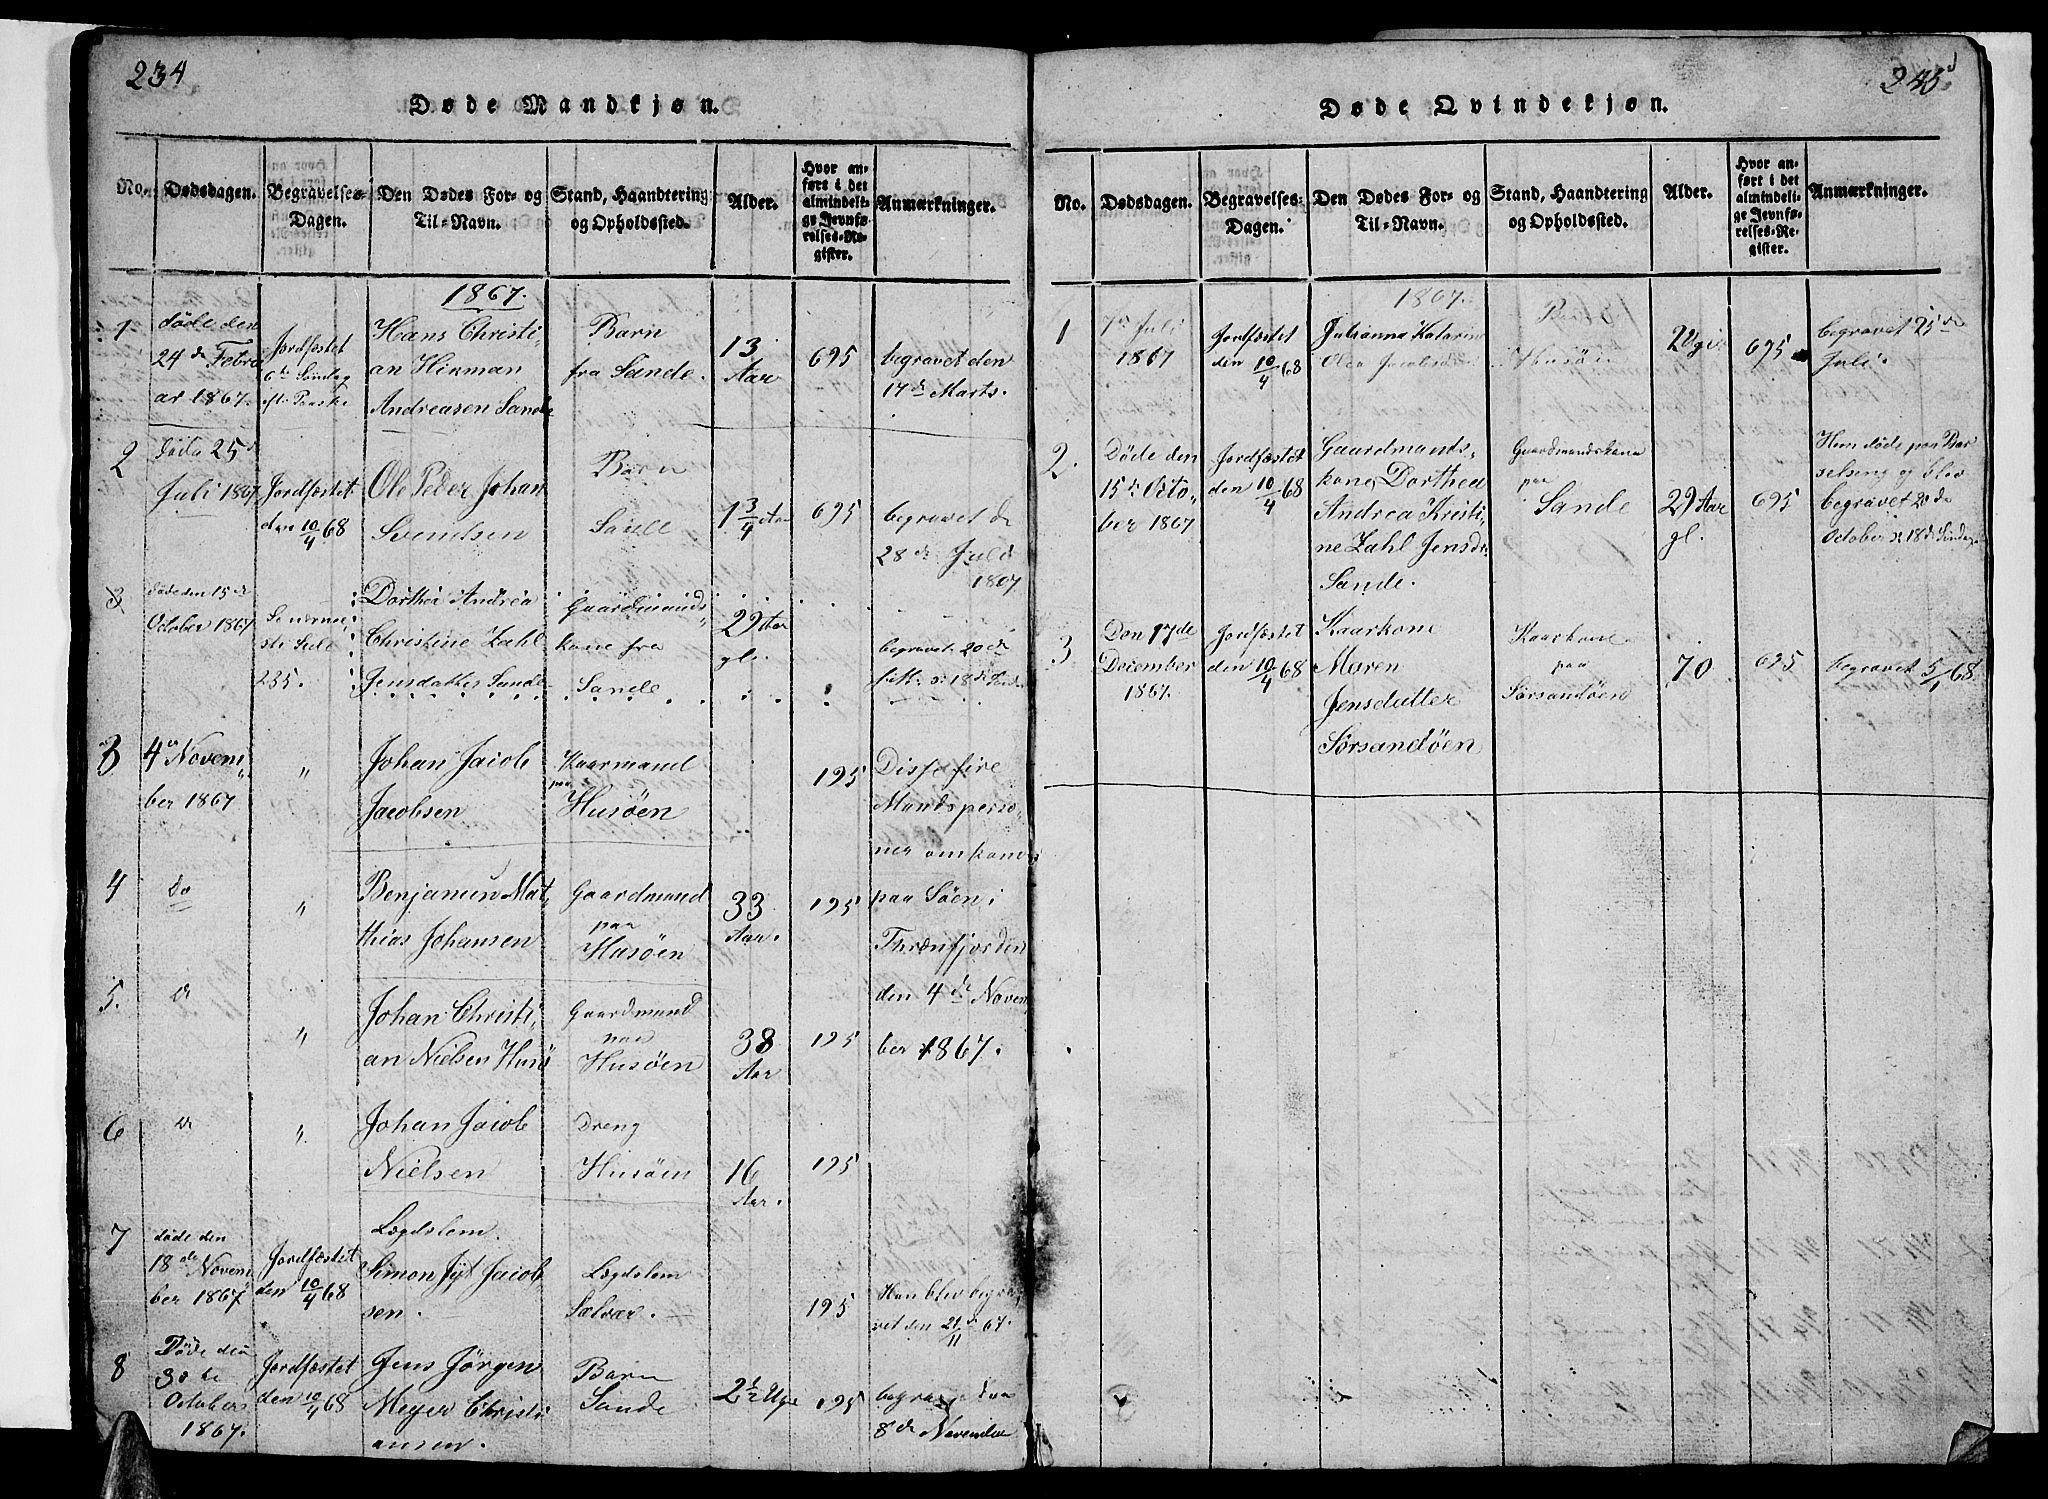 234
Døde Mandkjøn.
No.
Dødsdagen.
Begravelses-
Dagen.
Den Dødes For- og
Til-Navn.
Stand, Haandtering
og Opholdssted.
Alder.
Hvor an-
ført i det
almindeli-
ge Jevnfø-
relses-Re-
gister.
Anmærkninger.
1867.
1
døde den
24de Febru
ar 1867.
Jordfæstet
6te Søndag
eft. Paaske
Hans Christi
an Hinman
Andreasen Sande
Barn
fra Sande.
13
Aar
695
begravet den
17de Marts.
2
døde 25de
Juli 1867
Jordfæstet
den 10/4 68
Ole Peder Johan
Svendsen
Barn
Sande
1 3/4 Aar
695
begravet de
28de Juli
1867
3
døde den 15de
October 1867
Side
235.
Dorthea Andrea
Christine Zahl
Jensdatter Sande
Gaardmands
kone fra
Sande
29 Aar
gl.
begravet 20de
3
4de Novem
ber 1867
"
Johan Jacob
Jacobsen
Kaarmand
paa
Husøen
195
Disse fire
Mandsperso
ner omkom
4
Do
"
Benjamin Mat
thias Johansen
Gaardmand
paa
Husøen
33
Aar.
195
paa Søen i
Thrænfjorden
5.
do
"
Johan Christi
an Nielsen Husø
Gaardmand
paa
Husøen
38
Aar
195
den 4de Novem
ber 1867.
6
do
"
Johan Jacob
Nielsen
Dreng
Husøen
16
Aar.
195
7
døde den
18de Novem
ber 1867
Jordfæstet
den 10/4 68
Lægdslem.
Simon Jacob
sen.
Lægdslem
Selvær.
195
Han blev begra
vet den 21/11 67.
8
Døde den
30te
October
1867.
Jordfæstet
den 10/4 68
Jens Jørgen
Meyer Christi
ansen.
Barn
Sande
2 1/2 Uge
195
begravet den
8de November
245
Døde Qvindekjøn.
No.
Dødsdagen.
Begravelses-
Dagen.
Den Dødes For- og
Til-Navn.
Stand, Haandtering
og Opholdssted.
Alder.
Hvor an-
ført i det
almindeli-
ge Jevnfø-
relses-Re-
gister.
Anmærkninger.
1867.
1
7de Juli
1867
Jordfæstet
den 10/4 68
Julianna Katarina
Olea Jacobsdatter
Husøen
695
begravet 25de
Juli
2.
Døde den
15de Octo
ber 1867
Jordfæstet
den 10/4 68
Gaardmands
kone Dorthea
Andrea Kristi
ne Zahl Jensdr
Sande.
Gaardmandskone
paa
Sande
29 Aar
gl.
695
Hun døde paa Bar
selseng og blev
begravet 20de
October 18de Søndag
3
Den 17de
December
1867.
Jordfæstet
den 10/4 68
Kaarkone
Maren
Jensdatter
Sørsandøen
Kaarkone
paa
Sørsandøen
70
695
begravet 5/1 68